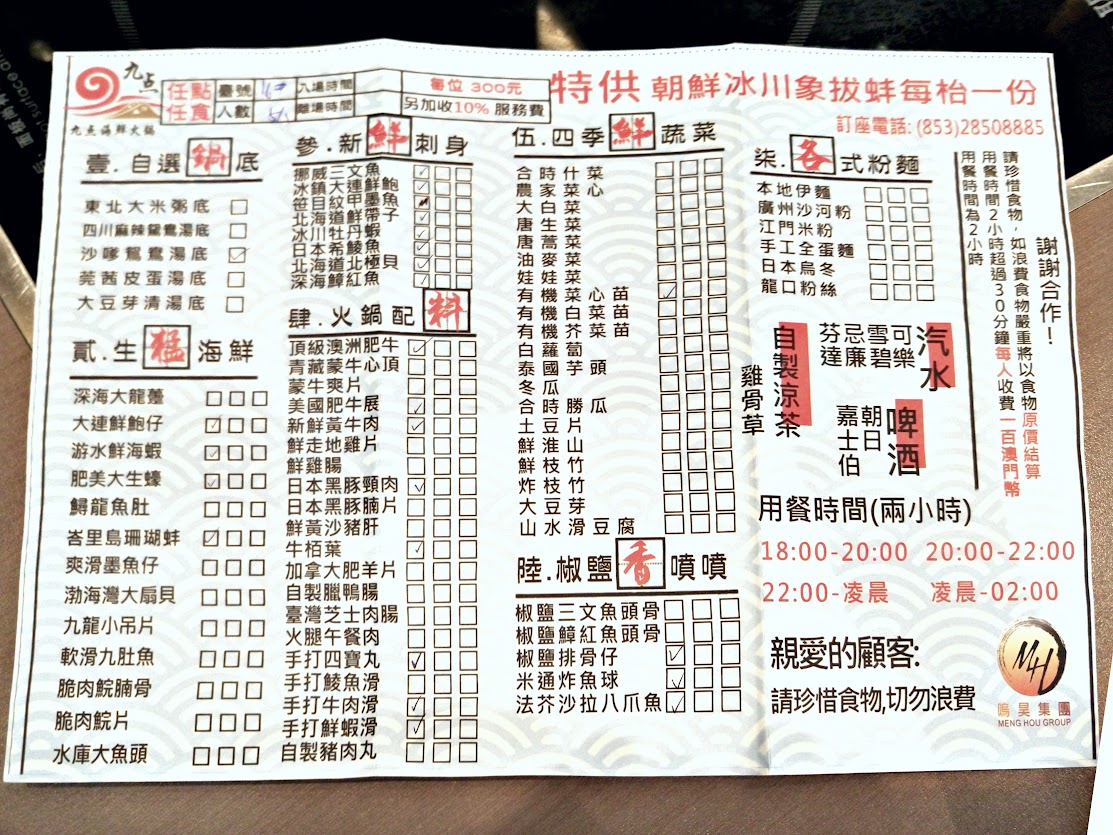 九点
九点海鮮火鍋
任點
任食
臺號
人數
入場時間
離場時間
每位 300元
另加收10% 服務費
特供 朝鮮冰川象拔蚌每枱一份
訂座電話: (853)28508885
壹.自選鍋底
東北大米粥底
四川麻辣鴛鴦湯底
沙嗲鴛鴦湯底
莞茜皮蛋湯底
大豆芽清湯底
貳.生猛海鮮
深海大龍躉
大連鮮鮑仔
游水鮮海蝦
肥美大生蠔
鱘龍魚肚
峇里島珊瑚蚌
爽滑墨魚仔
渤海灣大扇貝
九龍小吊片
軟滑九肚魚
脆肉鯇腩骨
脆肉鯇片
水庫大魚頭
參.新鮮刺身
挪威三文魚
冰鎮大連鮮鮑
笹目紋甲墨魚
北海道鮮帶子
冰川牡丹蝦
日本希鯪魚
北海道北極貝
深海鱆紅魚
肆.火鍋配料
頂級澳洲肥牛
青藏蒙牛心頂
蒙牛爽片
美國肥牛展
新鮮黃牛肉
鮮走地雞片
鮮雞腸
日本黑豚頸肉
日本黑豚腩片
鮮黃沙豬肝
牛栢葉
加拿大肥羊片
自製臘鴨腸
臺灣芝士肉腸
火腿午餐肉
手打四寶丸
手打鯪魚滑
手打牛肉滑
手打鮮蝦滑
自製豬肉丸
伍.四季鮮蔬菜
合時什菜
農家菜心
大白菜
唐生菜
唐蒿菜
油麥菜
娃娃菜
有機菜心苗
有機白菜苗
有機芥菜苗
白蘿蔔
泰國芋頭
冬瓜
合時勝瓜
土豆片
鮮淮山
鮮枝竹
炸枝竹
大豆芽
山水滑豆腐
陸.椒鹽香噴噴
椒鹽三文魚頭骨
椒鹽鱆紅魚頭骨
椒鹽排骨仔
米通炸魚球
法芥沙拉八爪魚
柒.各式粉麵
本地伊麵
廣州沙河粉
江門米粉
手工全蛋麵
日本烏冬
龍口粉絲
謝謝合作！
請珍惜食物，如浪費食物嚴重將以食物原價結算
用餐時間2小時超過30分鐘每人收費一百澳門幣
用餐時間為2小時
汽水
可樂
雪碧
忌廉
芬達
自製涼茶
雞骨草
啤酒
朝日
嘉士伯
用餐時間(兩小時)
18:00-20:00 20:00-22:00
22:00-凌晨 凌晨-02:00
親愛的顧客:
請珍惜食物,切勿浪費
MH
鳴昊集團
MENG HOU GROUP